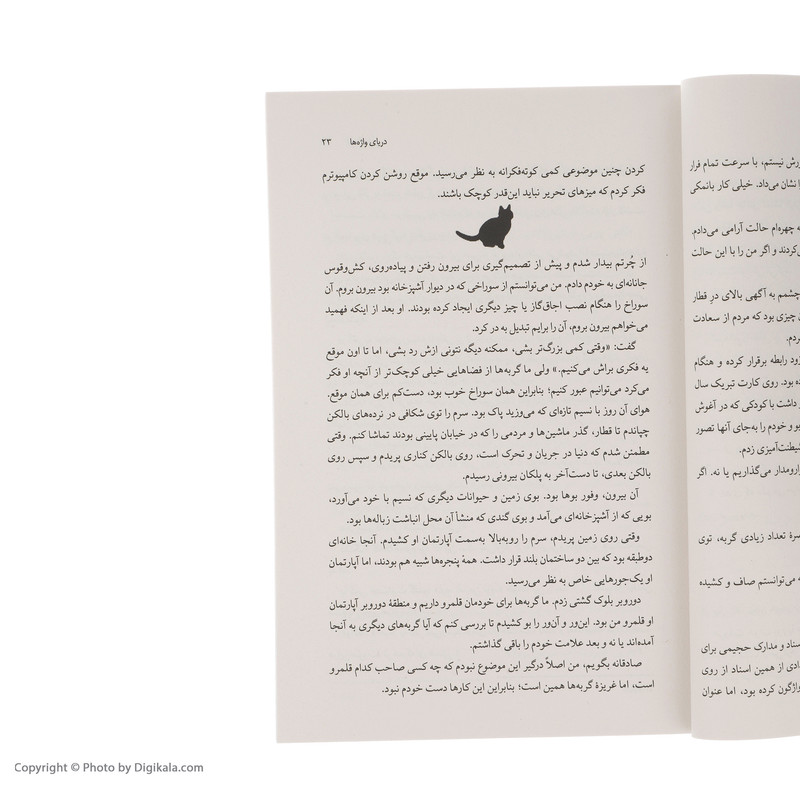 دریای واژه‌ها ۲۳
کردن چنین موضوعی کمی کوته‌فکرانه به نظر می‌رسید. موقع روشن کردن کامپیوترم
فکر کردم که میزهای تحریر نباید این‌قدر کوچک باشند.
از چُرتم بیدار شدم و پیش از تصمیم‌گیری برای بیرون رفتن و پیاده‌روی، کش‌وقوس
جانانه‌ای به خودم دادم. من می‌توانستم از سوراخی که در دیوار آشپزخانه بود بیرون بروم. آن
سوراخ را هنگام نصب اجاق‌گاز یا چیز دیگری ایجاد کرده بودند. او بعد از اینکه فهمید
می‌خواهم بیرون بروم، آن را برایم تبدیل به در کرد.
گفت: «وقتی کمی بزرگ‌تر بشی، ممکنه دیگه نتونی ازش رد بشی، اما تا اون موقع
یه فکری براش می‌کنیم.» ولی ما گربه‌ها از فضاهایی خیلی کوچک‌تر از آنچه او فکر
می‌کرد می‌توانیم عبور کنیم؛ بنابراین همان سوراخ خوب بود، دست‌کم برای همان موقع.
هوای آن روز با نسیم تازه‌ای که می‌وزید پاک بود. سرم را توی شکافی در نرده‌های بالکن
چپاندم تا قطار، گذر ماشین‌ها و مردمی را که در خیابان پایینی بودند تماشا کنم. وقتی
مطمئن شدم که دنیا در جریان و تحرک است، روی بالکن کناری پریدم و سپس روی
بالکن بعدی، تا دست‌آخر به پلکان بیرونی رسیدم.
آن بیرون، وفور بوها بود. بوی زمین و حیوانات دیگری که نسیم با خود می‌آورد،
بویی که از آشپزخانه‌ای می‌آمد و بوی گندی که منشأ آن محل انباشت زباله‌ها بود.
وقتی روی زمین پریدم، سرم را روبه‌بالا به‌سمت آپارتمان او کشیدم. آنجا خانه‌ای
دوطبقه بود که بین دو ساختمان بلند قرار داشت. همهٔ پنجره‌ها شبیه هم بودند، اما آپارتمان
او یک‌جورهایی خاص به نظر می‌رسید.
دوروبر بلوک گشتی زدم. ما گربه‌ها برای خودمان قلمرو داریم و منطقهٔ دوروبر آپارتمان
او قلمرو من بود. این‌ور و آن‌ور را بو کشیدم تا بررسی کنم که آیا گربه‌های دیگری به آنجا
آمده‌اند یا نه و بعد علامت خودم را باقی گذاشتم.
صادقانه بگویم، من اصلاً درگیر این موضوع نبودم که چه کسی صاحب کدام قلمرو
است، اما غریزهٔ گربه‌ها همین است؛ بنابراین این کارها دست خودم نبود.
نیستم، با سرعت تمام فرار
نشان می‌داد. خیلی کار بانمکی
چهره‌ام حالت آرامی می‌دادم.
کردند و اگر من را با این حالت
چشمم به آگهی بالای درِ قطار
چیزی بود که مردم از سعادت
رابطه برقرار کرده و هنگام
بود. روی کارت تبریک سال
داشت با کودکی که در آغوش
و خودم را به‌جای آنها تصور
شیطنت‌آمیزی زدم.
می‌گذاریم یا نه. اگر
تعداد زیادی گربه، توی
می‌توانستم صاف و کشیده
اسناد و مدارک حجیمی برای
از همین اسناد از روی
واژگون کرده بود، اما عنوان
Copyright © Photo by Digikala.com